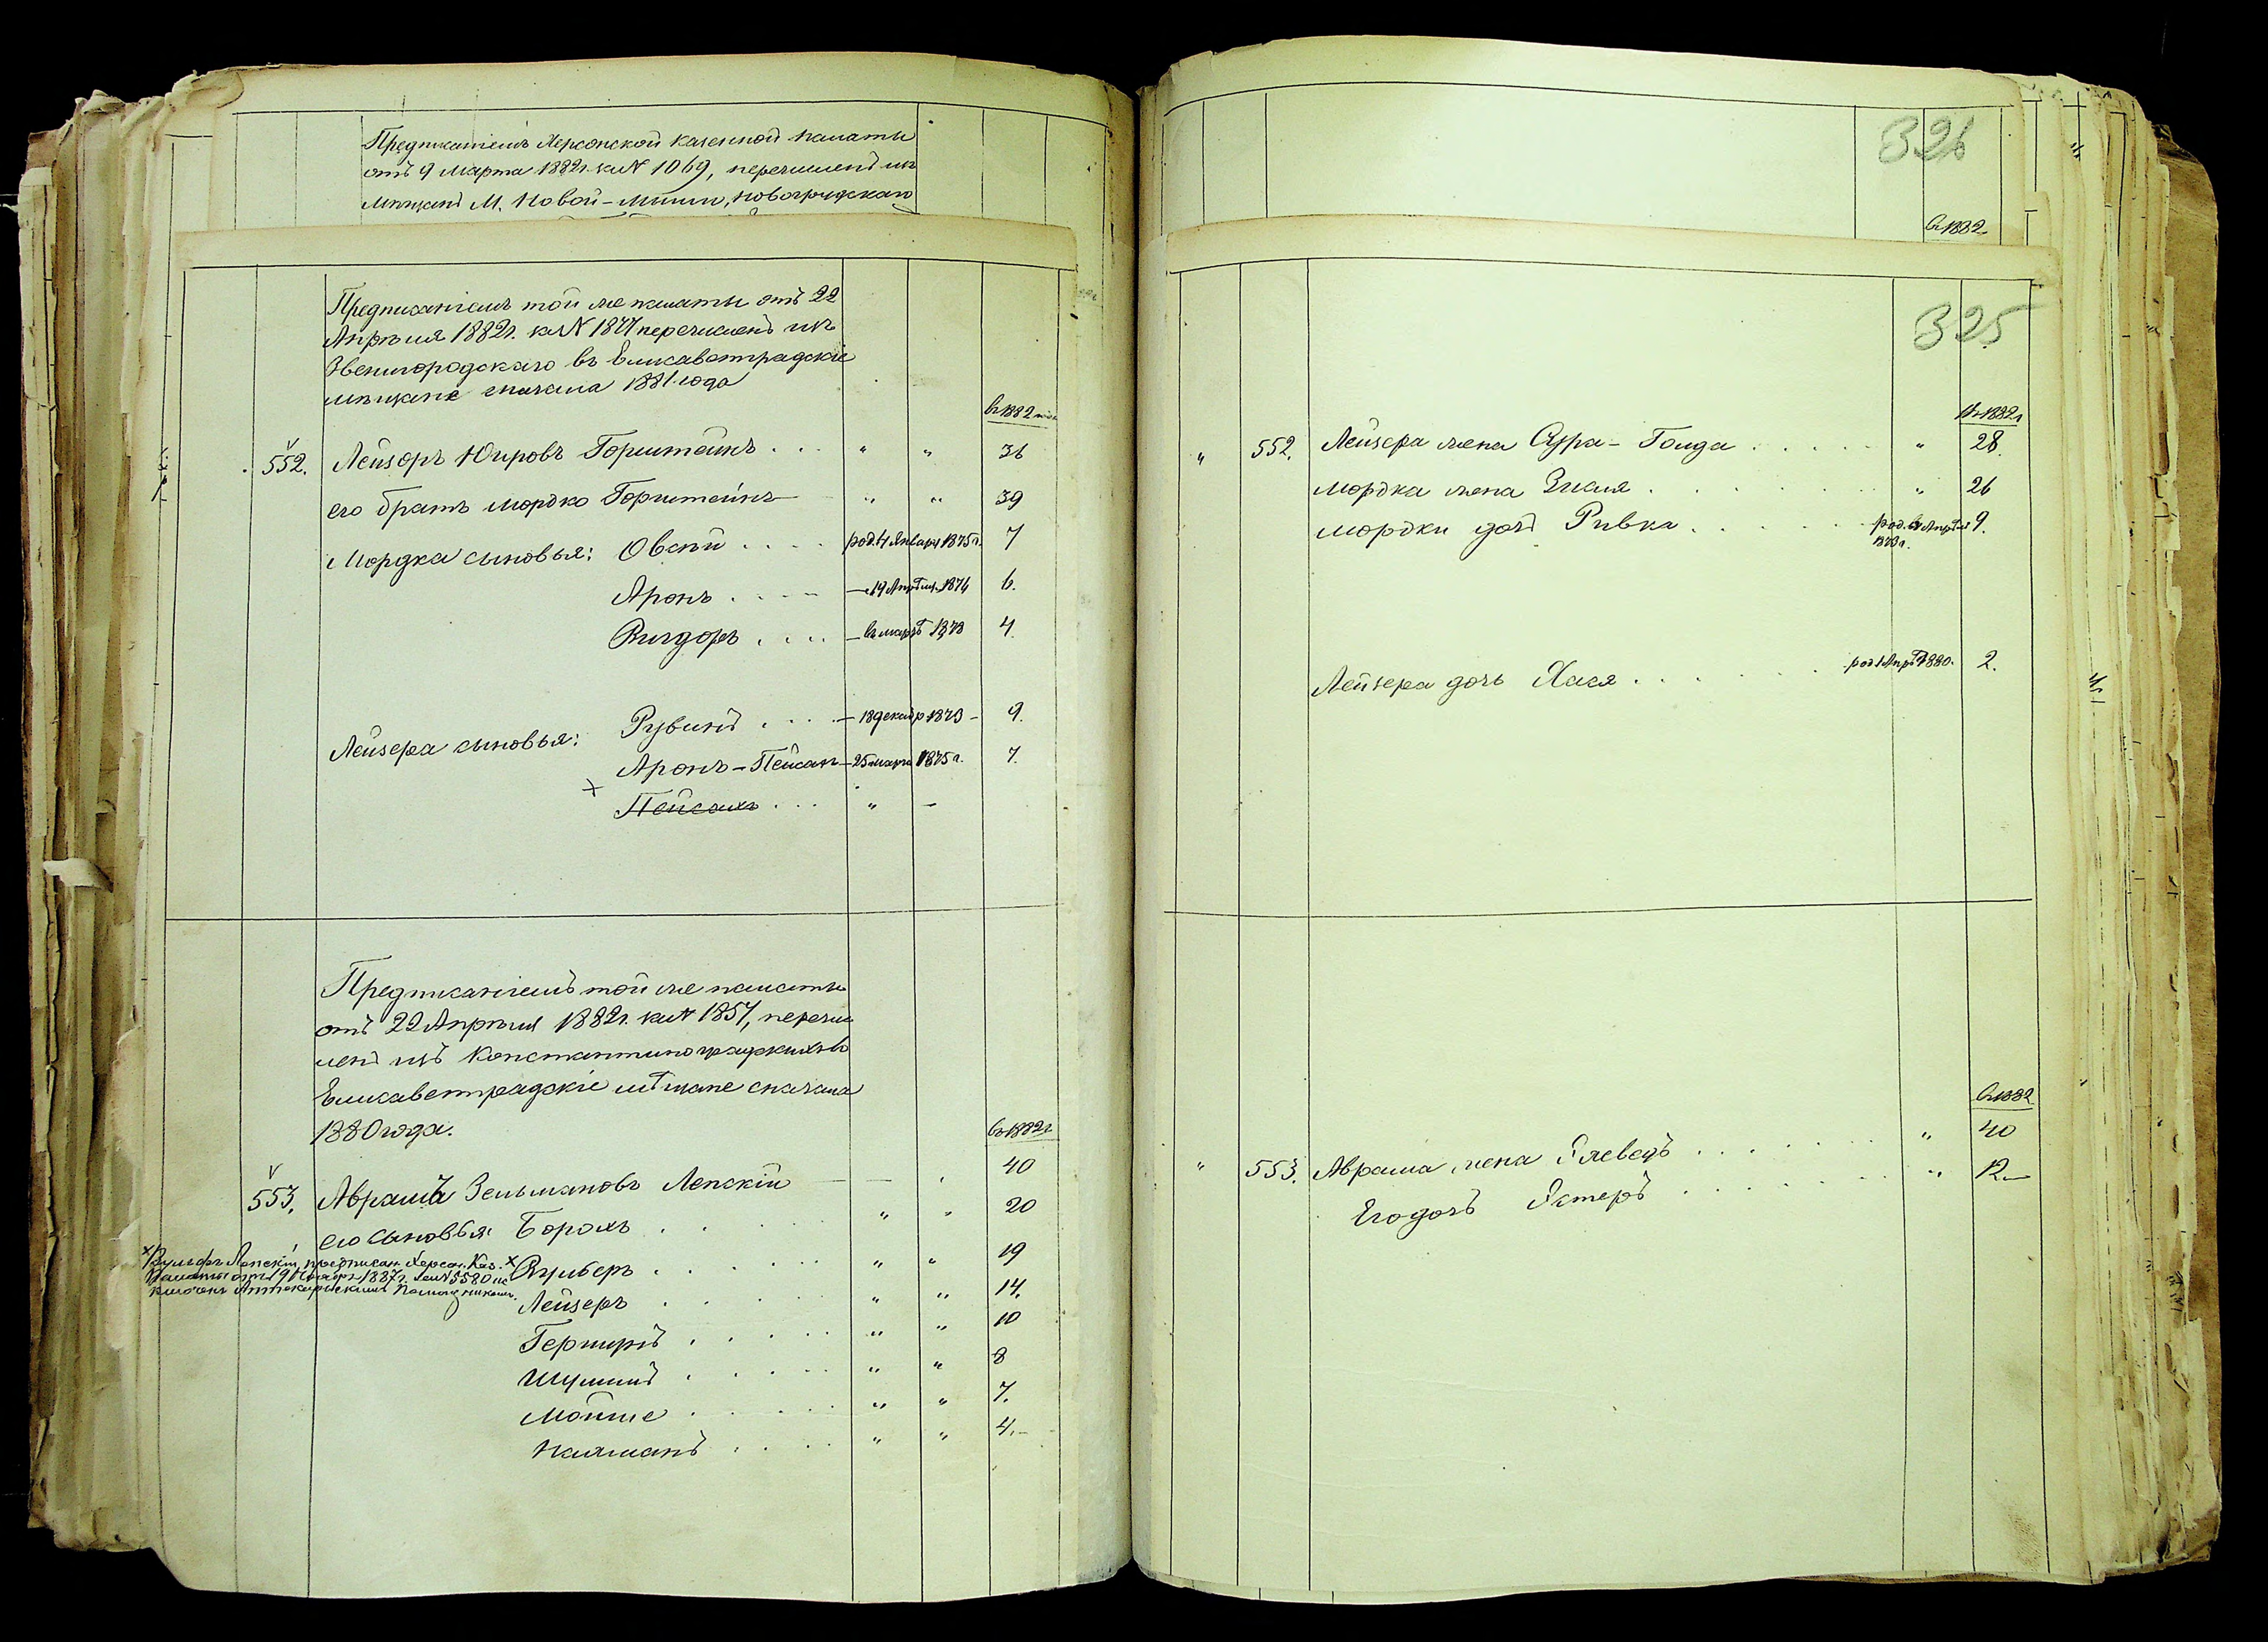 Предписаніемъ Херсонской казенной палаты
отъ 9 марта 1882г. за N 1069, перечисленъ изъ
мѣщанъ М. Новой-Мыши, Новогрудскаго
326
въ 1882
Предписаніемъ той же палаты отъ 22
Апрѣля 1882г. за N 1877 перечисленъ изъ
Звенигородскаго въ Елисаветградскіе
мѣщане сначала 1881 года
въ 1882 году
552. Лейзоръ Юировъ Горштейнъ . . . " " 36
его братъ Мордко Горштейнъ " " 39
Мордка сыновья: Овсѣй . . . . род. 4 Января 1875г. 7
Аронъ . . . . — 19 Апрѣля 1876 6.
Вигдоръ . . . . — въ мартѣ 1878 4.
Лейзера сыновья: Рувинъ . . . . — 18 декабр 1873 — 9.
Аронъ-Пейсахъ — 25 марта 1875г. 7.
× Пейсахъ . . . " —
Предписаніемъ той же палаты
отъ 22 Апрѣля 1882г. за N 1857, перечис
ленъ изъ Константиноградскихъ въ
Елисаветградскіе мѣщане сначала
1880 года.
въ 1882г.
553. Аврамъ Зельмановъ Лепскій — — . 40
его сыновья: Борохъ . . . " " 20
× Вульфъ Лепскій, предписан. Херсон. Каз.
Палаты отъ 19 1887г. за N 5580 ис
ключенъ Аптекарскимъ Помощникомъ.
× Вульберъ . . . . " " 19
Лейзеръ . . . . " " 14.
Гершкръ . . . . . " " 10
Шулимъ . . . . . " " 8
Мойше . . . . . " " 7.
Калманъ . . . . " " 4.—
325
Въ 1882г.
" 552. Лейзера жена Сура-Голда . . . . . " 28.
Мордка жена Зисля . . . . . . " 26
Мордки дочь Ривка . . . . . . род. въ Апрѣлѣ 9.
1873г.
Лейзера дочь Хася . . . . . . род. 1 Апрѣл 1880. 2.
въ 1882
" 553. Аврама жена Элеведъ . . . . . . " 40
Его дочь Эстеръ . . . . . . . " 12.—